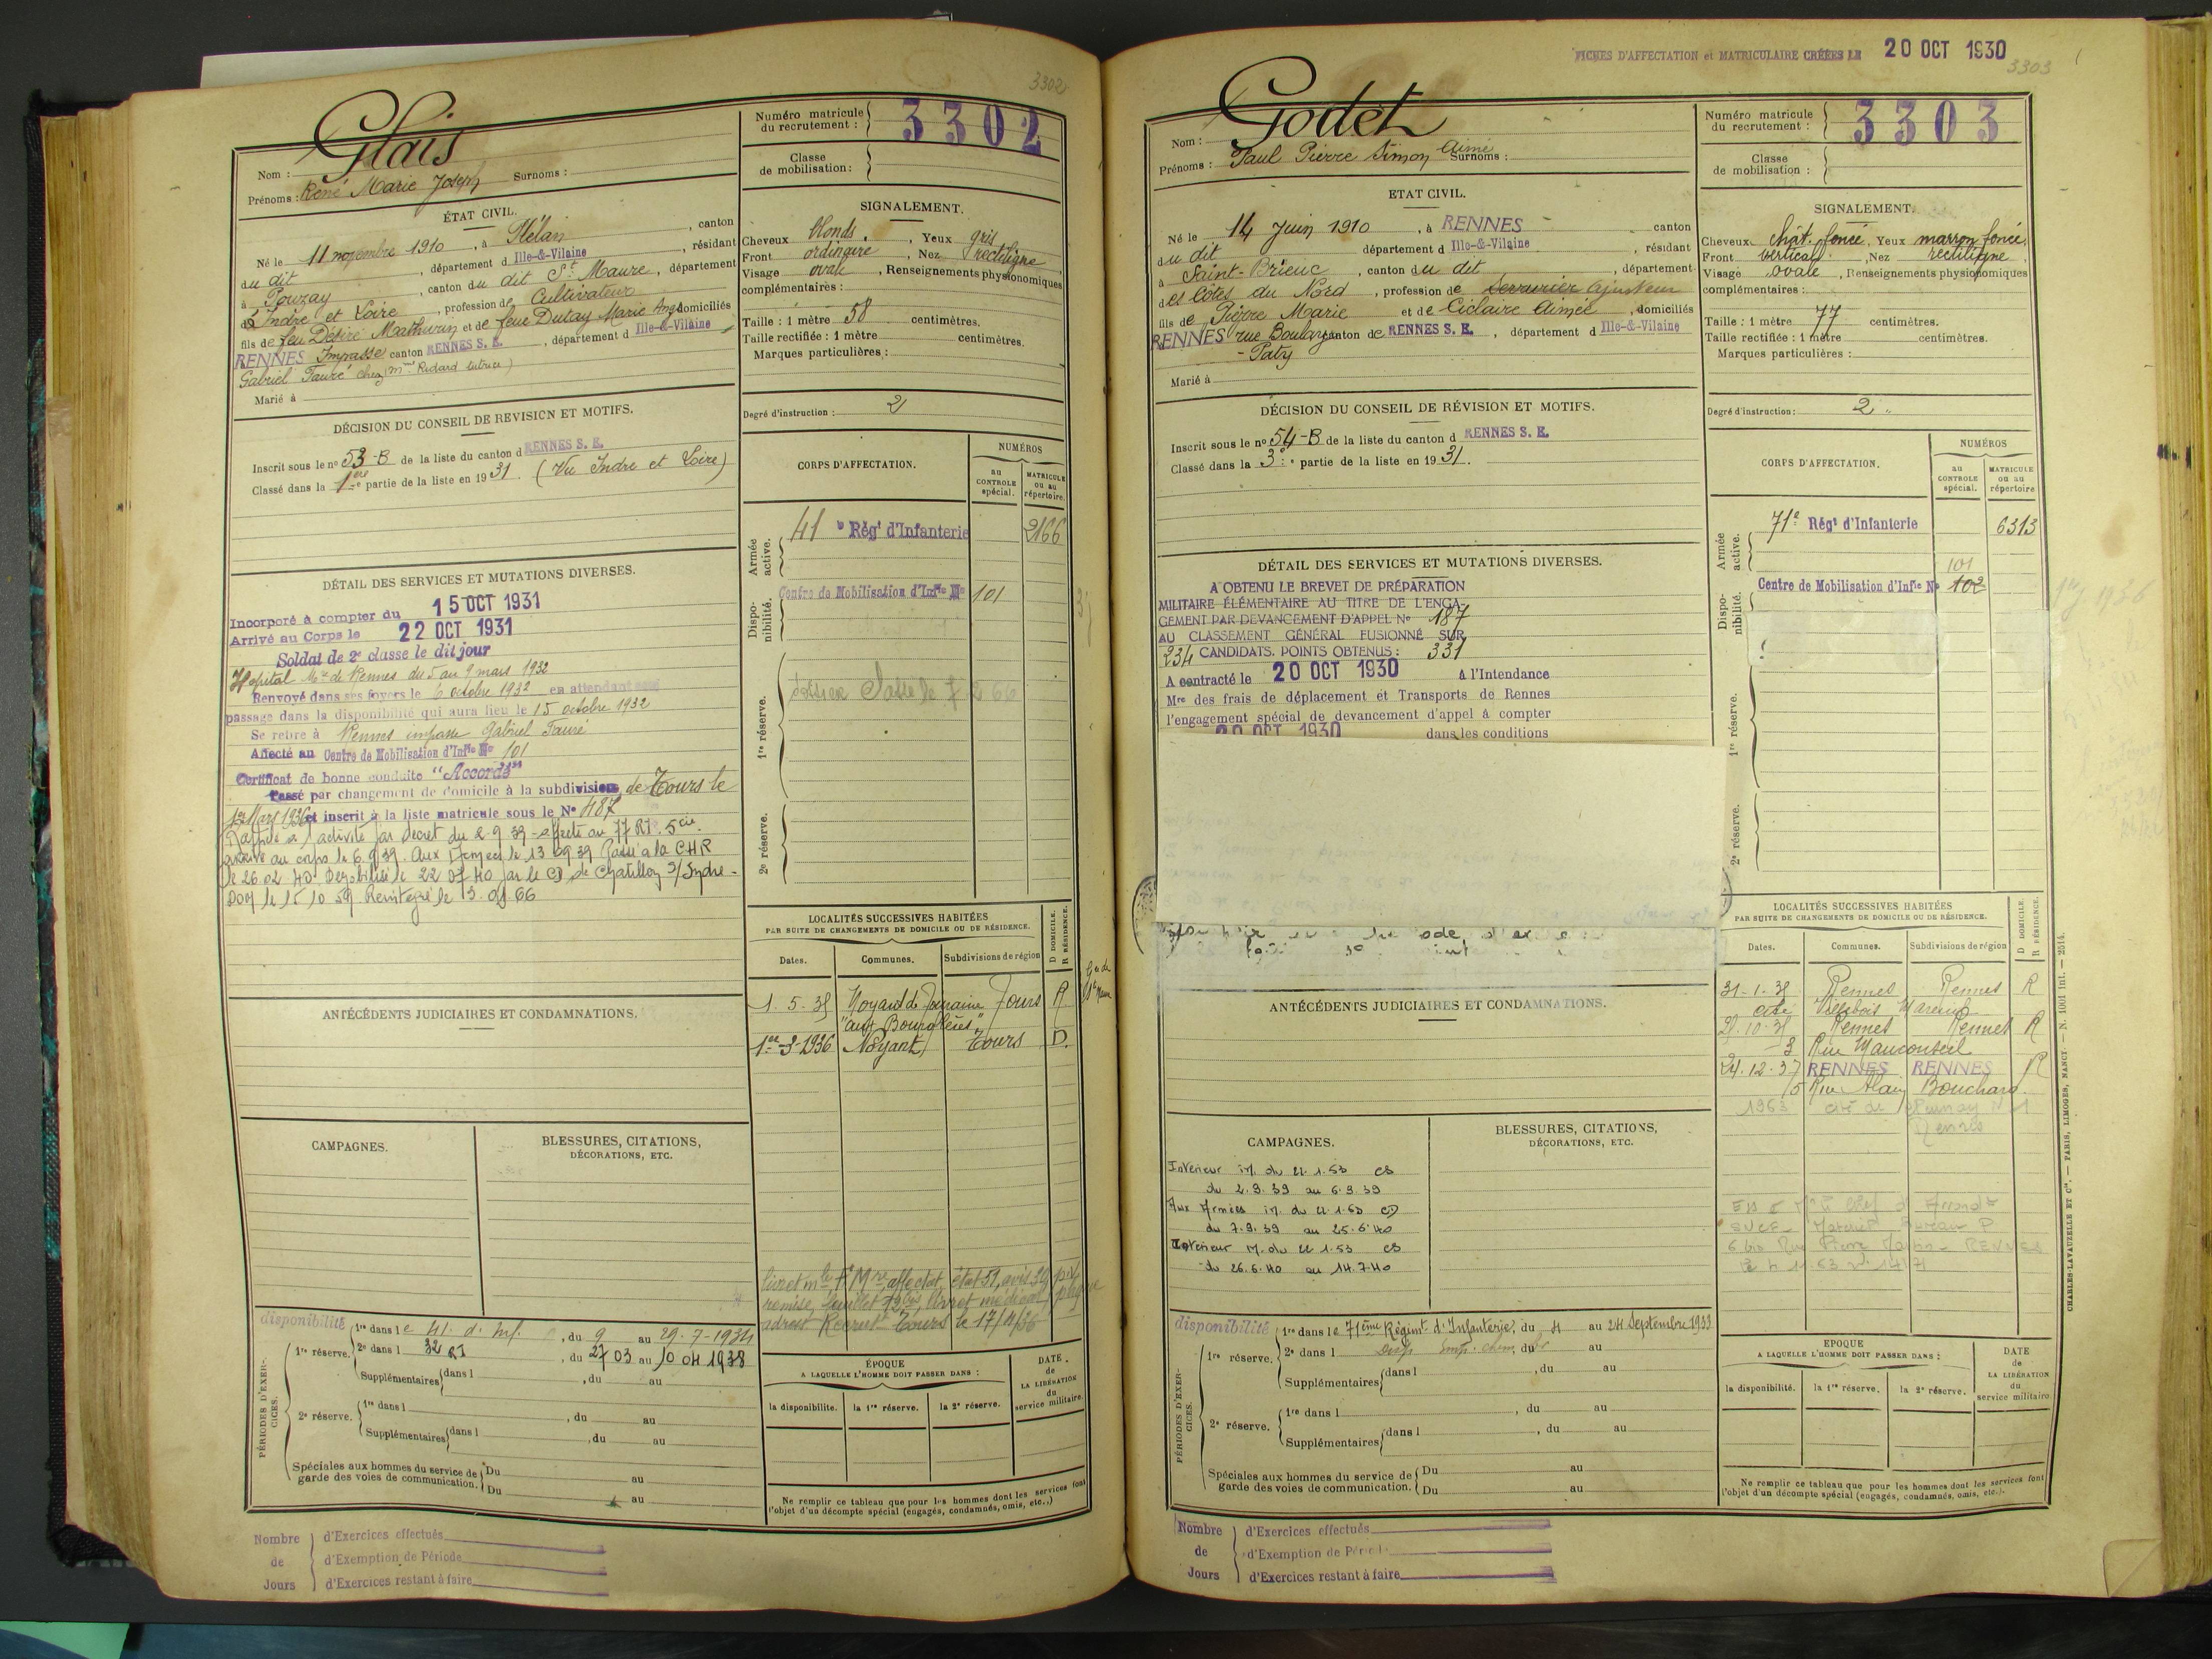 3302
Glais
Nom :
Prénoms : René Marie Joseph Surnoms :
Numéro matricule du recrutement : 3302
Classe de mobilisation :
ÉTAT CIVIL.
Né le 11 novembre 1910, à Plélan, canton
du dit, département d Ille-&-Vilaine, résidant
à Pouzay, canton du dit St Maure, département
d'Indre et Loire, profession de Cultivateur
fils de feu Désiré Mathurin et de feue Dutay Marie Ange domiciliés
RENNES Impasse canton RENNES S. E., département d Ille-&-Vilaine
Gabriel Fauré chez (Mme Ridard tutrice)
Marié à
SIGNALEMENT.
Cheveux blonds, Yeux gris
Front ordinaire, Nez rectiligne
Visage ovale, Renseignements physionomiques
complémentaires :
Taille : 1 mètre 58 centimètres.
Taille rectifiée : 1 mètre centimètres.
Marques particulières :
Degré d'instruction : 2
DÉCISION DU CONSEIL DE REVISION ET MOTIFS.
Inscrit sous le no 53-B de la liste du canton d RENNES S. E.
Classé dans la 1ère partie de la liste en 1931. (Vu Indre et Loire)
CORPS D'AFFECTATION.
NUMÉROS
au CONTROLE spécial.
MATRICULE ou au répertoire.
Armée active.
41e Régt d'Infanterie 2166
Dispo-nibilité.
Centre de Mobilisation d'Infie No 101
1re réserve.
2e réserve.
DÉTAIL DES SERVICES ET MUTATIONS DIVERSES.
Incorporé à compter du 15 OCT 1931
Arrivé au Corps le 22 OCT 1931
Soldat de 2e classe le dit jour
Hopital Mre de Rennes du 5 au 9 mars 1932
Renvoyé dans ses foyers le 6 octobre 1932 en attendant son
passage dans la disponibilité qui aura lieu le 15 octobre 1932
Se retire à Rennes impasse Gabriel Fauré
Affecté au Centre de Mobilisation d'Infie No 101
Certificat de bonne conduite "Accordé"
Passé par changement de domicile à la subdivision de Tours le
1er Mars 1936 et inscrit à la liste matricule sous le No 487
Rappelé à l'activité par décret du 2-9 39 - affecté au 77 RI. 5 cie.
arrivé au corps le 6.9.39. Aux Armées le 13 09 39 Passé à la CHR
le 26 02 40. Démobilisé le 22 07 40 par le CD de Chatillon s/Indre -
le 15 10 59. Réintégré le 13.01.66
LOCALITÉS SUCCESSIVES HABITÉES
PAR SUITE DE CHANGEMENTS DE DOMICILE OU DE RÉSIDENCE.
D DOMICILE. R RÉSIDENCE.
Dates. Communes. Subdivisions de région
1. 5. 35 Noyant de Touraine Tours R
1er-3-1936 Noyant Tours D.
ANTÉCÉDENTS JUDICIAIRES ET CONDAMNATIONS.
CAMPAGNES.
BLESSURES, CITATIONS,
DÉCORATIONS, ETC.
adressé Recrut Tours le 17/4/36
PÉRIODES D'EXER-CICES.
disponibilité
1re réserve. 1re dans le 41. d. Inf., du 9 au 29-7-1934
2e dans l 32 RI, du 27 03 au 10 04 1938
Supplémentaires dans l , du au
2e réserve. 1re dans l , du au
Supplémentaires dans l , du au
Spéciales aux hommes du service de garde des voies de communication. Du au
Du au
ÉPOQUE
A LAQUELLE L'HOMME DOIT PASSER DANS :
la disponibilite. la 1re réserve. la 2e réserve.
DATE de LA LIBÉRATION du service militaire.
Ne remplir ce tableau que pour les hommes dont les services font
l'objet d'un décompte spécial (engagés, condamnés, omis, etc.,)
Nombre de Jours
d'Exercices effectués
d'Exemption de Période
d'Exercices restant à faire
FICHES D'AFFECTATION et MATRICULAIRE CRÉÉES LE 20 OCT 1930
3303
Godet
Nom :
Prénoms : Paul Pierre Simon Aimé Surnoms :
Numéro matricule du recrutement : 3303
Classe de mobilisation :
ETAT CIVIL.
Né le 14 Juin 1910, à RENNES canton
du dit département d Ille-&-Vilaine, résidant
à Saint-Brieuc, canton du dit, département
des Côtes du Nord, profession de Serrurier Ajusteur
fils de Pierre Marie et de Ciclaire Aimée, domiciliés
RENNES rue Boulay canton de RENNES S. E., département d Ille-&-Vilaine
- Paty
Marié à
SIGNALEMENT.
Cheveux chât. foncé, Yeux marron foncé,
Front vertical, Nez rectiligne,
Visage ovale, Renseignements physionomiques
complémentaires :
Taille : 1 mètre 77 centimètres.
Taille rectifiée : 1 mètre centimètres.
Marques particulières :
Degré d'instruction : 2
DÉCISION DU CONSEIL DE RÉVISION ET MOTIFS.
Inscrit sous le no 54-B de la liste du canton d RENNES S. E.
Classé dans la 3e partie de la liste en 1931.
CORPS D'AFFECTATION.
NUMÉROS
au CONTROLE spécial.
MATRICULE ou au répertoire
Armée active.
71e Régt d'Infanterie 6313
Dispo-nibilité.
101
Centre de Mobilisation d'Infie No 102
1re réserve.
2e réserve.
DÉTAIL DES SERVICES ET MUTATIONS DIVERSES.
A OBTENU LE BREVET DE PRÉPARATION
MILITAIRE ÉLÉMENTAIRE AU TITRE DE L'ENGA-
GEMENT PAR DEVANCEMENT D'APPEL No 187
AU CLASSEMENT GÉNÉRAL FUSIONNÉ SUR
234 CANDIDATS. POINTS OBTENUS : 331
A contracté le 20 OCT 1930 à l'Intendance
Mre des frais de déplacement et Transports de Rennes
l'engagement spécial de devancement d'appel à compter
20 OCT 1930 dans les conditions
LOCALITÉS SUCCESSIVES HABITÉES
PAR SUITE DE CHANGEMENTS DE DOMICILE OU DE RÉSIDENCE.
D DOMICILE. R RÉSIDENCE.
Dates. Communes. Subdivisions de région
31-1-35 Rennes Rennes R
cité Villebois Mareuil
Rennes Rennes R
3 Rue Mauconseil
24.12.37 RENNES RENNES R
5 Rue Alain Bouchard
ANTÉCÉDENTS JUDICIAIRES ET CONDAMNATIONS.
CAMPAGNES.
Intérieur du 2.9.39 au 6.9.39
Aux Armées
du 7.9.39 au 25.6.40
Intérieur
du 26.6.40 au 14.7.40
BLESSURES, CITATIONS,
DÉCORATIONS, ETC.
PÉRIODES D'EXER-CICES.
disponibilité
1re réserve. 1re dans le 71ème Régimt d'Infanterie, du 4 au 24 Septembre 1933
2e dans l du au
Supplémentaires dans l , du au
2e réserve. 1re dans l , du au
Supplémentaires dans l , du au
Spéciales aux hommes du service de garde des voies de communication. Du au
Du au
EPOQUE
A LAQUELLE L'HOMME DOIT PASSER DANS :
la disponibilité. la 1re réserve. la 2e réserve.
DATE de LA LIBÉRATION du service militaire
Ne remplir ce tableau que pour les hommes dont les services font
l'objet d'un décompte spécial (engagés, condamnés, omis, etc.).
CHARLES-LAVAUZELLE ET Cie. — PARIS, LIMOGES, NANCY. — N. 1001 Int. — 2514.
Nombre de Jours
d'Exercices effectués
d'Exemption de Période
d'Exercices restant à faire